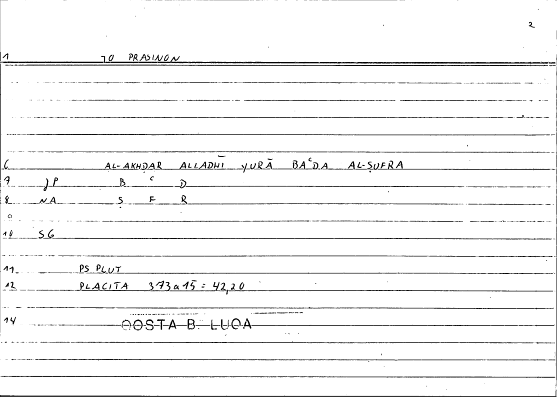 2
1 TO PRASINON
6 AL-AKHḌAR ALLADHĪ YURĀ BAᶜDA AL-ṢUFRA
7 JP B ᶜ D
8 NA Ṣ F R
9
10 SG
11 PS PLUT
12 PLACITA 373a15 = 42,20
14 QOSTA B. LUQA